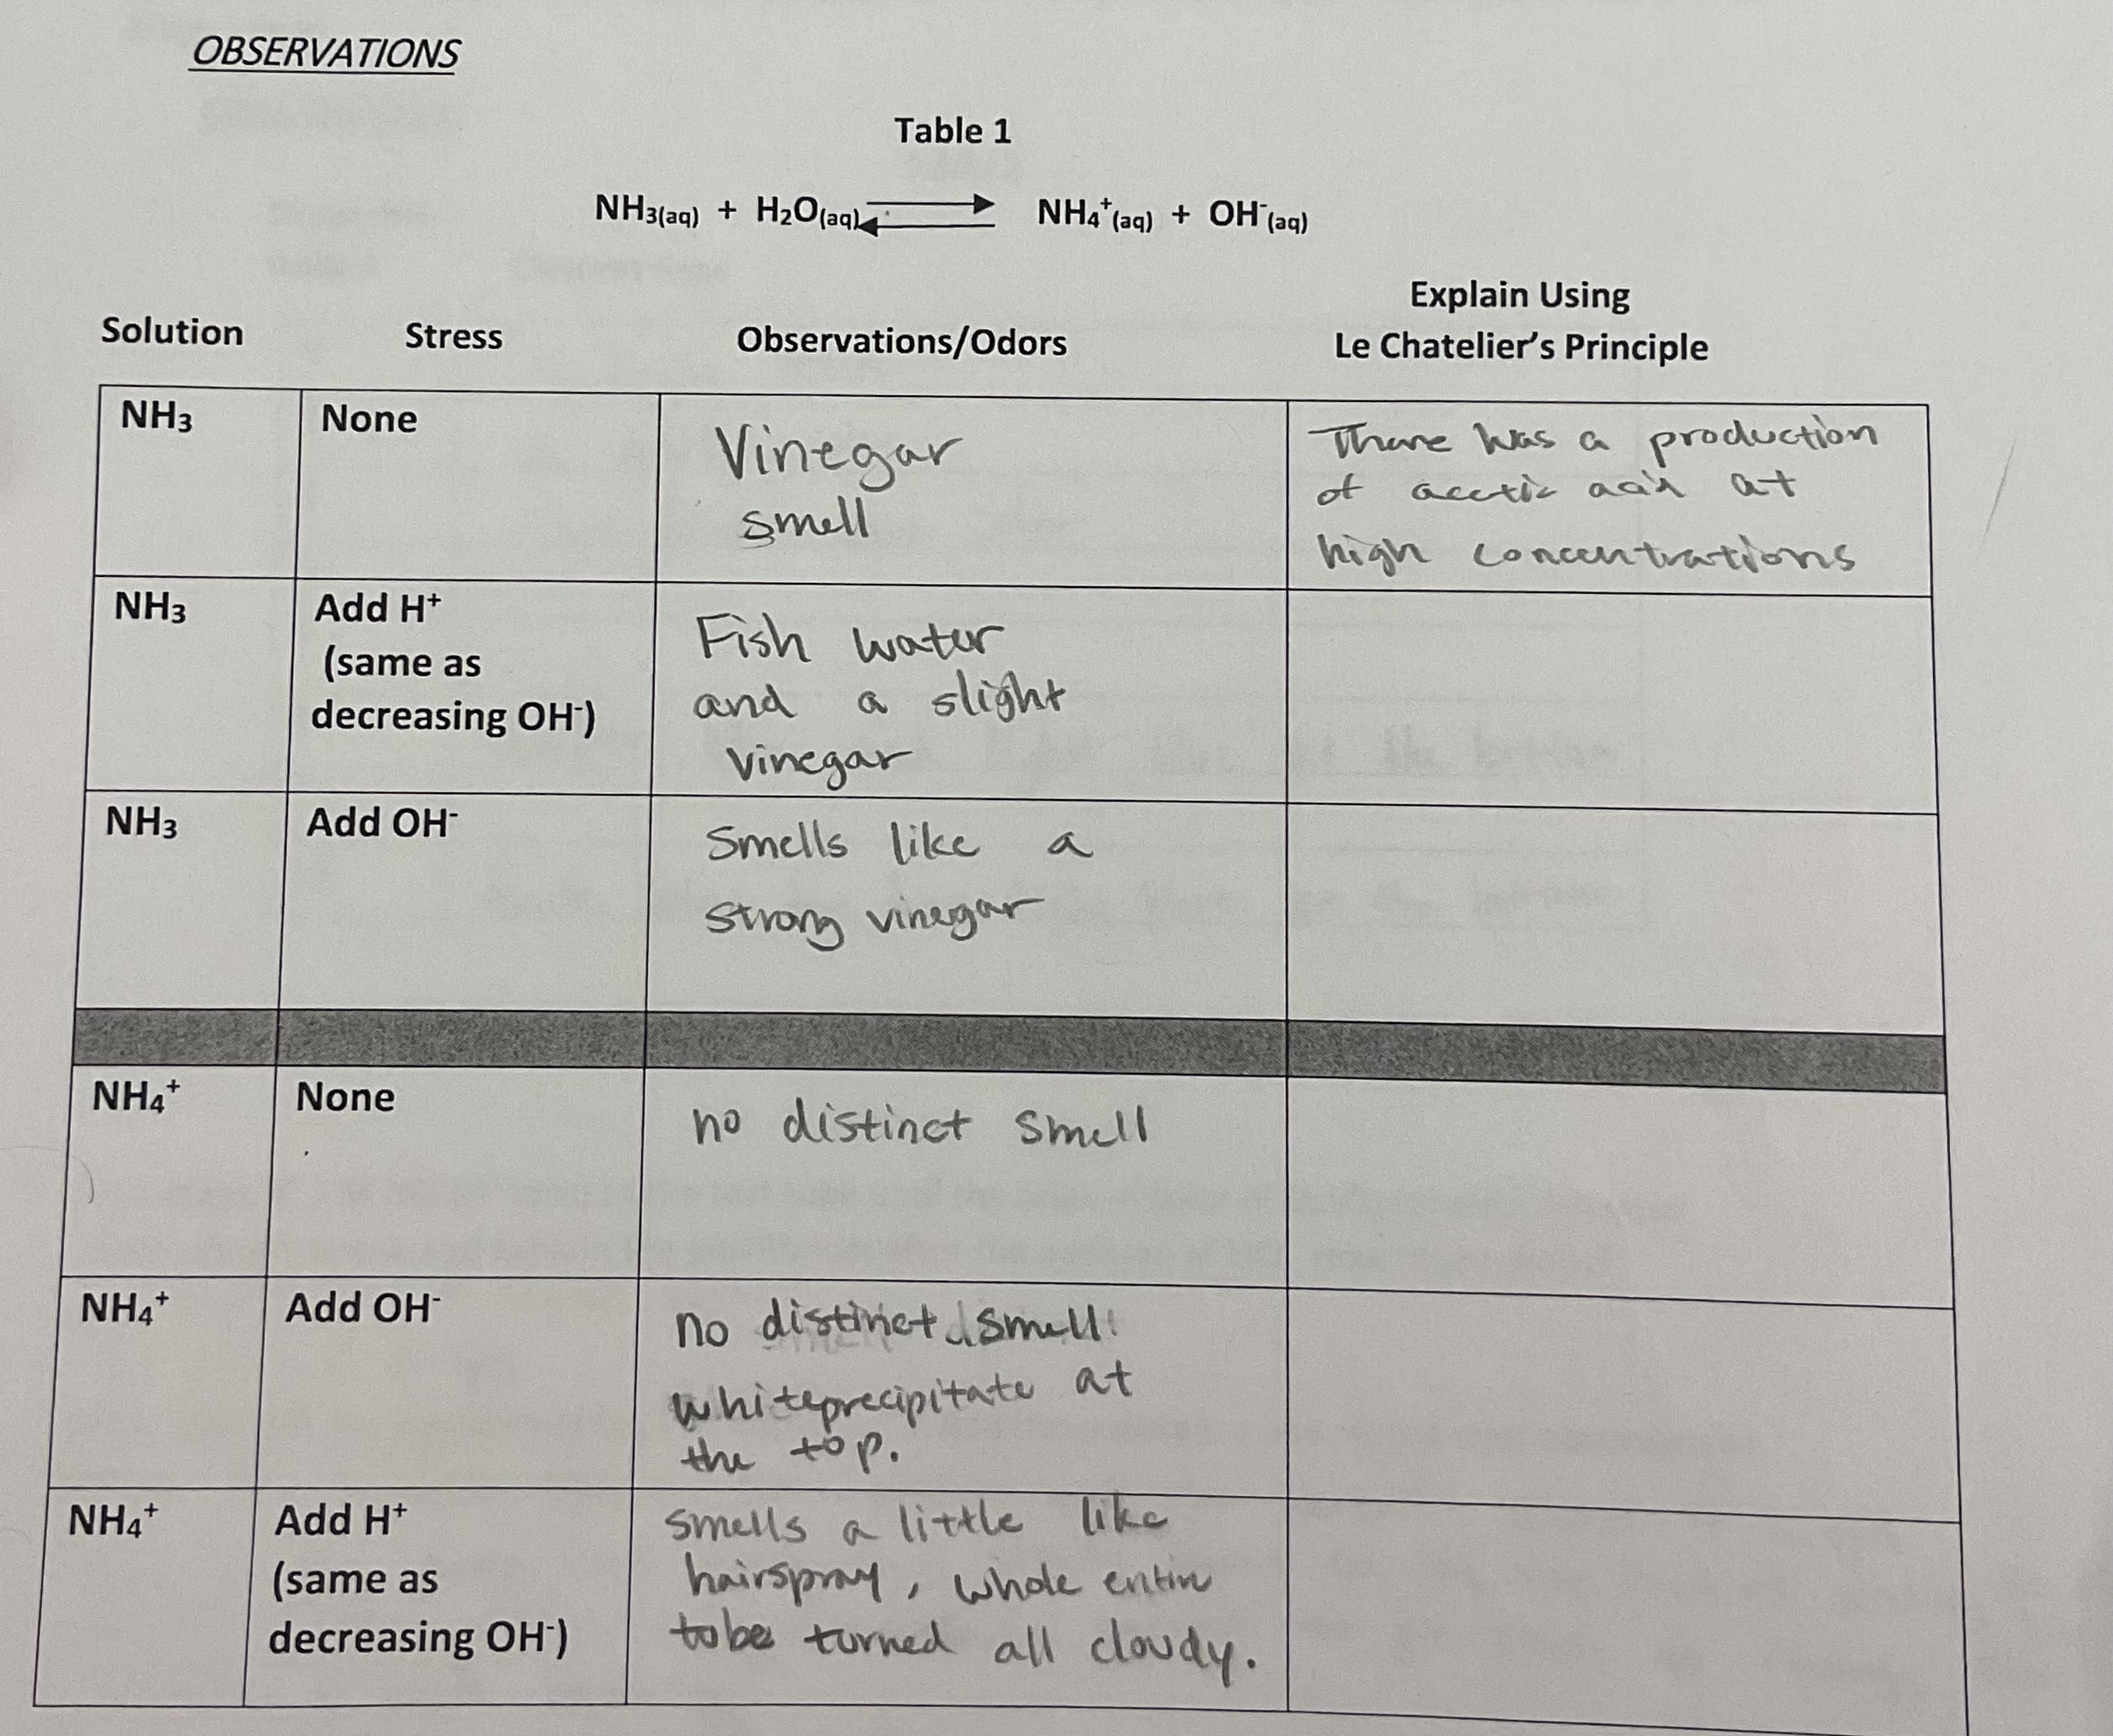 OBSERVATIONS
Table 1
NH₃(aq) + H₂O(aq) ⇌ NH₄⁺(aq) + OH⁻(aq)
Solution Stress Observations/Odors Explain Using
Le Chatelier's Principle
NH₃ None Vinegar
smell
There was a production
of acetic acid at
high concentrations
NH₃ Add H⁺
(same as
decreasing OH⁻)
Fish water
and a slight
vinegar
NH₃ Add OH⁻ Smells like a
strong vinegar
NH₄⁺ None no distinct smell
NH₄⁺ Add OH⁻ no distinct smell
white precipitate at
the top.
NH₄⁺ Add H⁺
(same as
decreasing OH⁻)
smells a little like
hairspray, whole entire
tobe turned all cloudy.